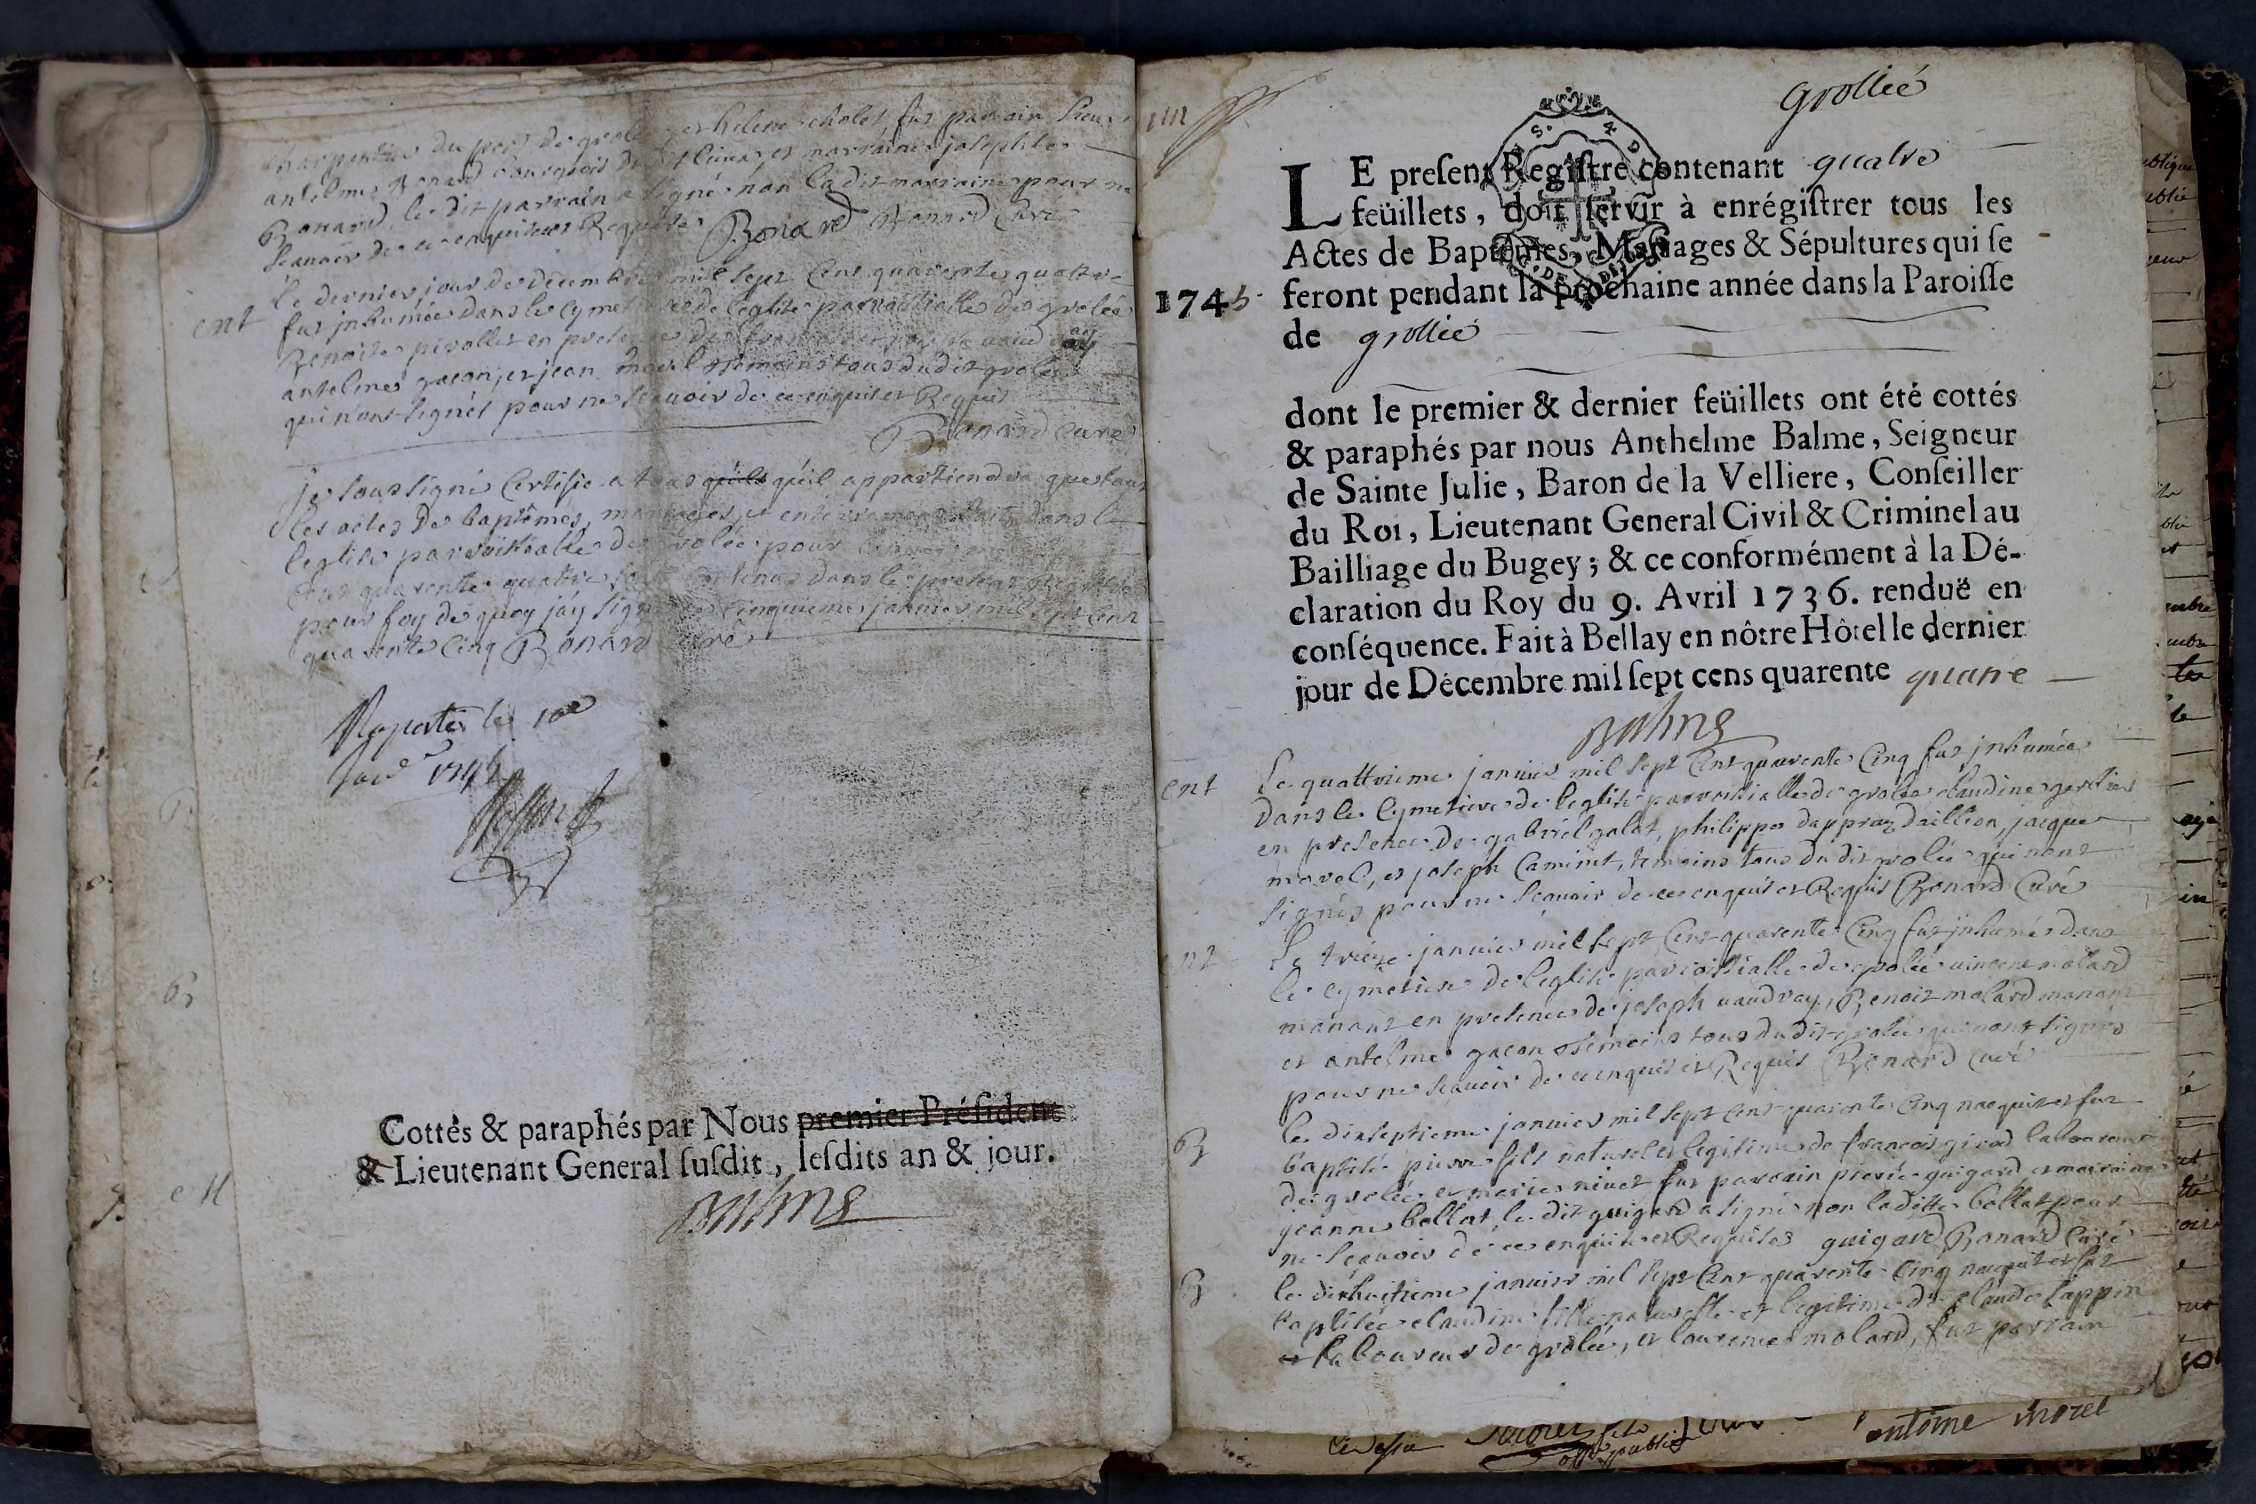 charpentier du port de grolée et helene cholet, fut parrain sieur
antelme Bonard bourgeois de et marraine josephte
Bonard, le dit parrain a signé non la dit marraine pour ne
scauoir de ce enquise et Requise Bonard Bonard Curé
ent
le dernier jour de decembre mil sept cent quarente quattre
fut inhumée dans le cymetiere de l'eglise parroissialle de grolée
Benoite pirollet en presence de vaudray
antelme gacon, et jean morel temoins tous du dit grolée
qui n'ont signés pour ne scauoir de ce enquis et Requis
Bonard curé
je soussigné Certifie a tous qu'ils qu'il appartiendra que tous
les actes de baptêmes, mariages, et enterremens faits dans
l'eglise parroissialle de grolée pour l'année mil sept
cent quarente quattre sont contenus dans le present Registre
pour foy de quoy j'ay signé ce cinquieme januier mil sept cent
quarente Cinq Bonard curé
Raporté le 10e
Janr 1745
B
e M
Cottés & paraphés par Nous premier Président
& Lieutenant General susdit, lesdits an & jour.
Balme
Grollié
LE presenr Registre contenant quatre
feüillets, doit servir à enrégistrer tous les
Actes de Baptêmes, Mariages & Sépultures qui se
1745 feront pendant la prochaine année dans la Paroisse
de grollié
dont le premier & dernier feüillets ont été cottés
& paraphés par nous Anthelme Balme, Seigneur
de Sainte Julie, Baron de la Velliere, Conseiller
du Roi, Lieutenant General Civil & Criminel au
Bailliage du Bugey; & ce conformément à la Dé-
claration du Roy du 9. Avril 1736. renduë en
conséquence. Fait à Bellay en nôtre Hôtel le dernier
jour de Décembre mil sept cens quarente quatre
Balme
ent
Le quattrieme januier mil sept Cent quarente Cinq fut inhumée
dans le Cymetiere de l'eglise parroissialle de grolée claudine
en presence de gabriel galat, philippe dapraz daillion, jacque
morel, et joseph Caminet, temoins tous du dit grolée qui n'ont
signés pour ne scauoir de ce enquis et Requis Bonard Curé
ent
Le treize januier mil sept Cent quarente Cinq fut inhumé dans
le cymetiere de l'eglise parroissialle de grolée vincent molard
manant en presence de joseph vaudray, Benoit molard manant
et antelme gacon temoins tous du dit grolée qui n'ont signés
pour ne scauoir de ce enquis et Requis Bonard curé
B
le dixseptieme januier mil sept cent quarente Cinq nacquit et fut
baptisé pierre fils naturel et legitime de francois girod laboureur
de grolée et marie nivet fut parrain pierre guigard et marraine
jeanne bollat, le dit guigard a signé non laditte bollat pour
ne scauoir de ce enquise et Requise guigard Bonard Curé
B
le dixhuitieme januier mil sept Cent quarente Cinq nacquit et fut
baptisée claudine fille naturelle et legitime de claude sappin
laboureur de grolée, et laurence molard, fut parrain
antoine morel